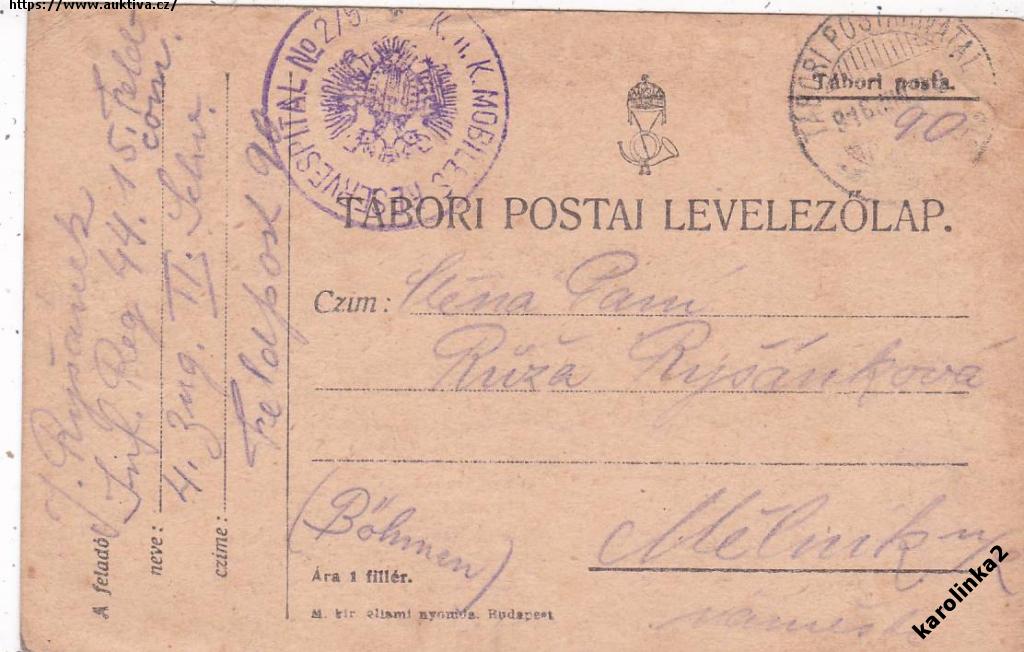 https://www.auktiva.cz/
K. u. K. MOBILES RESERVESPITAL No 2/5
TÁBORI POSTAHIVATAL
Tábori posta.
90
TÁBORI POSTAI LEVELEZŐLAP.
Czim: Ctěná Paní
Růža Ryšánková
Mělník
(Böhmen)
Ára 1 fillér.
M. kir. állami nyomda. Budapest
A feladó
neve:
czime:
J. Ryšánek
Inf. Reg 44. 15. Feld-
com.
4. Zug. II. Schw.
Feldpost 90
karolinka2